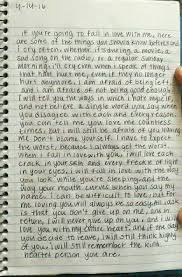 4-14-16
if you're going to fall in love with me, here
are some of the things you should know beforehand
I cry often. whether it's during a movie, a
sad song on the radio, or a regular sunday
morning. I'll cry even when I speak of things
that have hurt me, even if they no longer
hurt anymore. I am afraid of being left
and I am afraid of not being good enough.
I will tell you the ways in which I hate myself,
and not believe a single word you say when
you disagree with each and every reason.
you can tell me you love me countless
times, but I will still be afraid of you leaving
me. don't blame yourself. I have to expect
the worst, because I always get the worst.
when I fall in love with you, I will love each
crack in your skin and every freckle of light
in your eyes. I will fall in love with the way
you look while you're sleeping and the
way your mouth curves when you say my
name. I can be difficult to love, but for
me, loving you will always be so easy. All I ask
is that you don't give up on me, and in
return, I will never give up on you. and I will
love you with my entire heart, and if one day
you decide to leave, I will still think highly
of you. I will still remember the kind
hearted person you are.